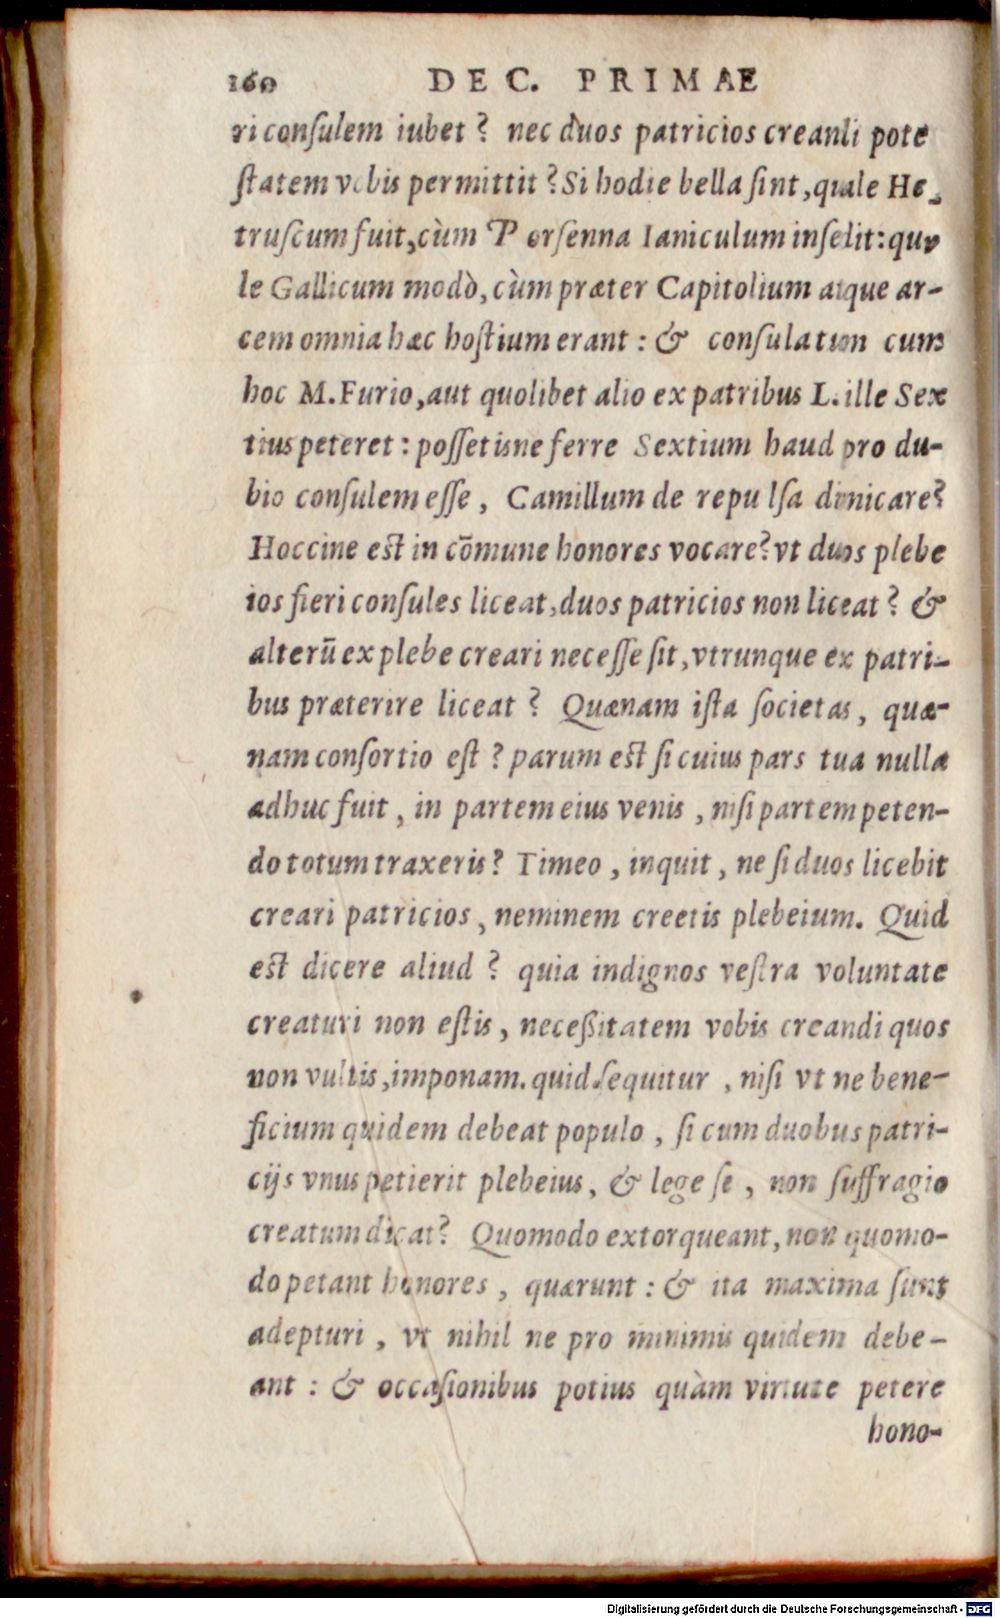 160 DEC. PRIMAE
ri conſulem iubet? nec duos patricios creandi pote
ſtatem vobis permittit? Si hodie bella ſint, quale He-
truſcum fuit, cùm Porſenna Ianiculum inſedit: qua
le Gallicum modò, cùm præter Capitolium atque ar-
cem omnia hæc hoſtium erant: & conſulatum cum
hoc M. Furio, aut quolibet alio ex patribus L. ille Sex
tius peteret: poſſetisne ferre Sextium haud pro du-
bio conſulem eſſe, Camillum de repulſa dimicare?
Hoccine eſt in cōmune honores vocare? vt duos plebe
ios fieri conſules liceat, duos patricios non liceat? &
alterū ex plebe creari neceſſe ſit, vtrunque ex patri-
bus præterire liceat? Quænam iſta ſocietas, quæ-
nam conſortio eſt? parum eſt ſi cuius pars tua nulla
adhuc fuit, in partem eius venis, niſi partem peten-
do totum traxeris? Timeo, inquit, ne ſi duos licebit
creari patricios, neminem creetis plebeium. Quid
eſt dicere aliud? quia indignos veſtra voluntate
creaturi non eſtis, neceßitatem vobis creandi quos
non vultis, imponam. quid ſequitur, niſi vt ne bene-
ficium quidem debeat populo, ſi cum duobus patri-
cijs vnus petierit plebeius, & lege ſe, non ſuffragio
creatum dicat? Quomodo extorqueant, non quomo-
do petant honores, quærunt: & ita maxima ſunt
adepturi, vt nihil ne pro minimis quidem debe-
ant: & occaſionibus potius quàm virtute petere
hono-
Digitalisierung gefördert durch die Deutsche Forschungsgemeinschaft - DFG